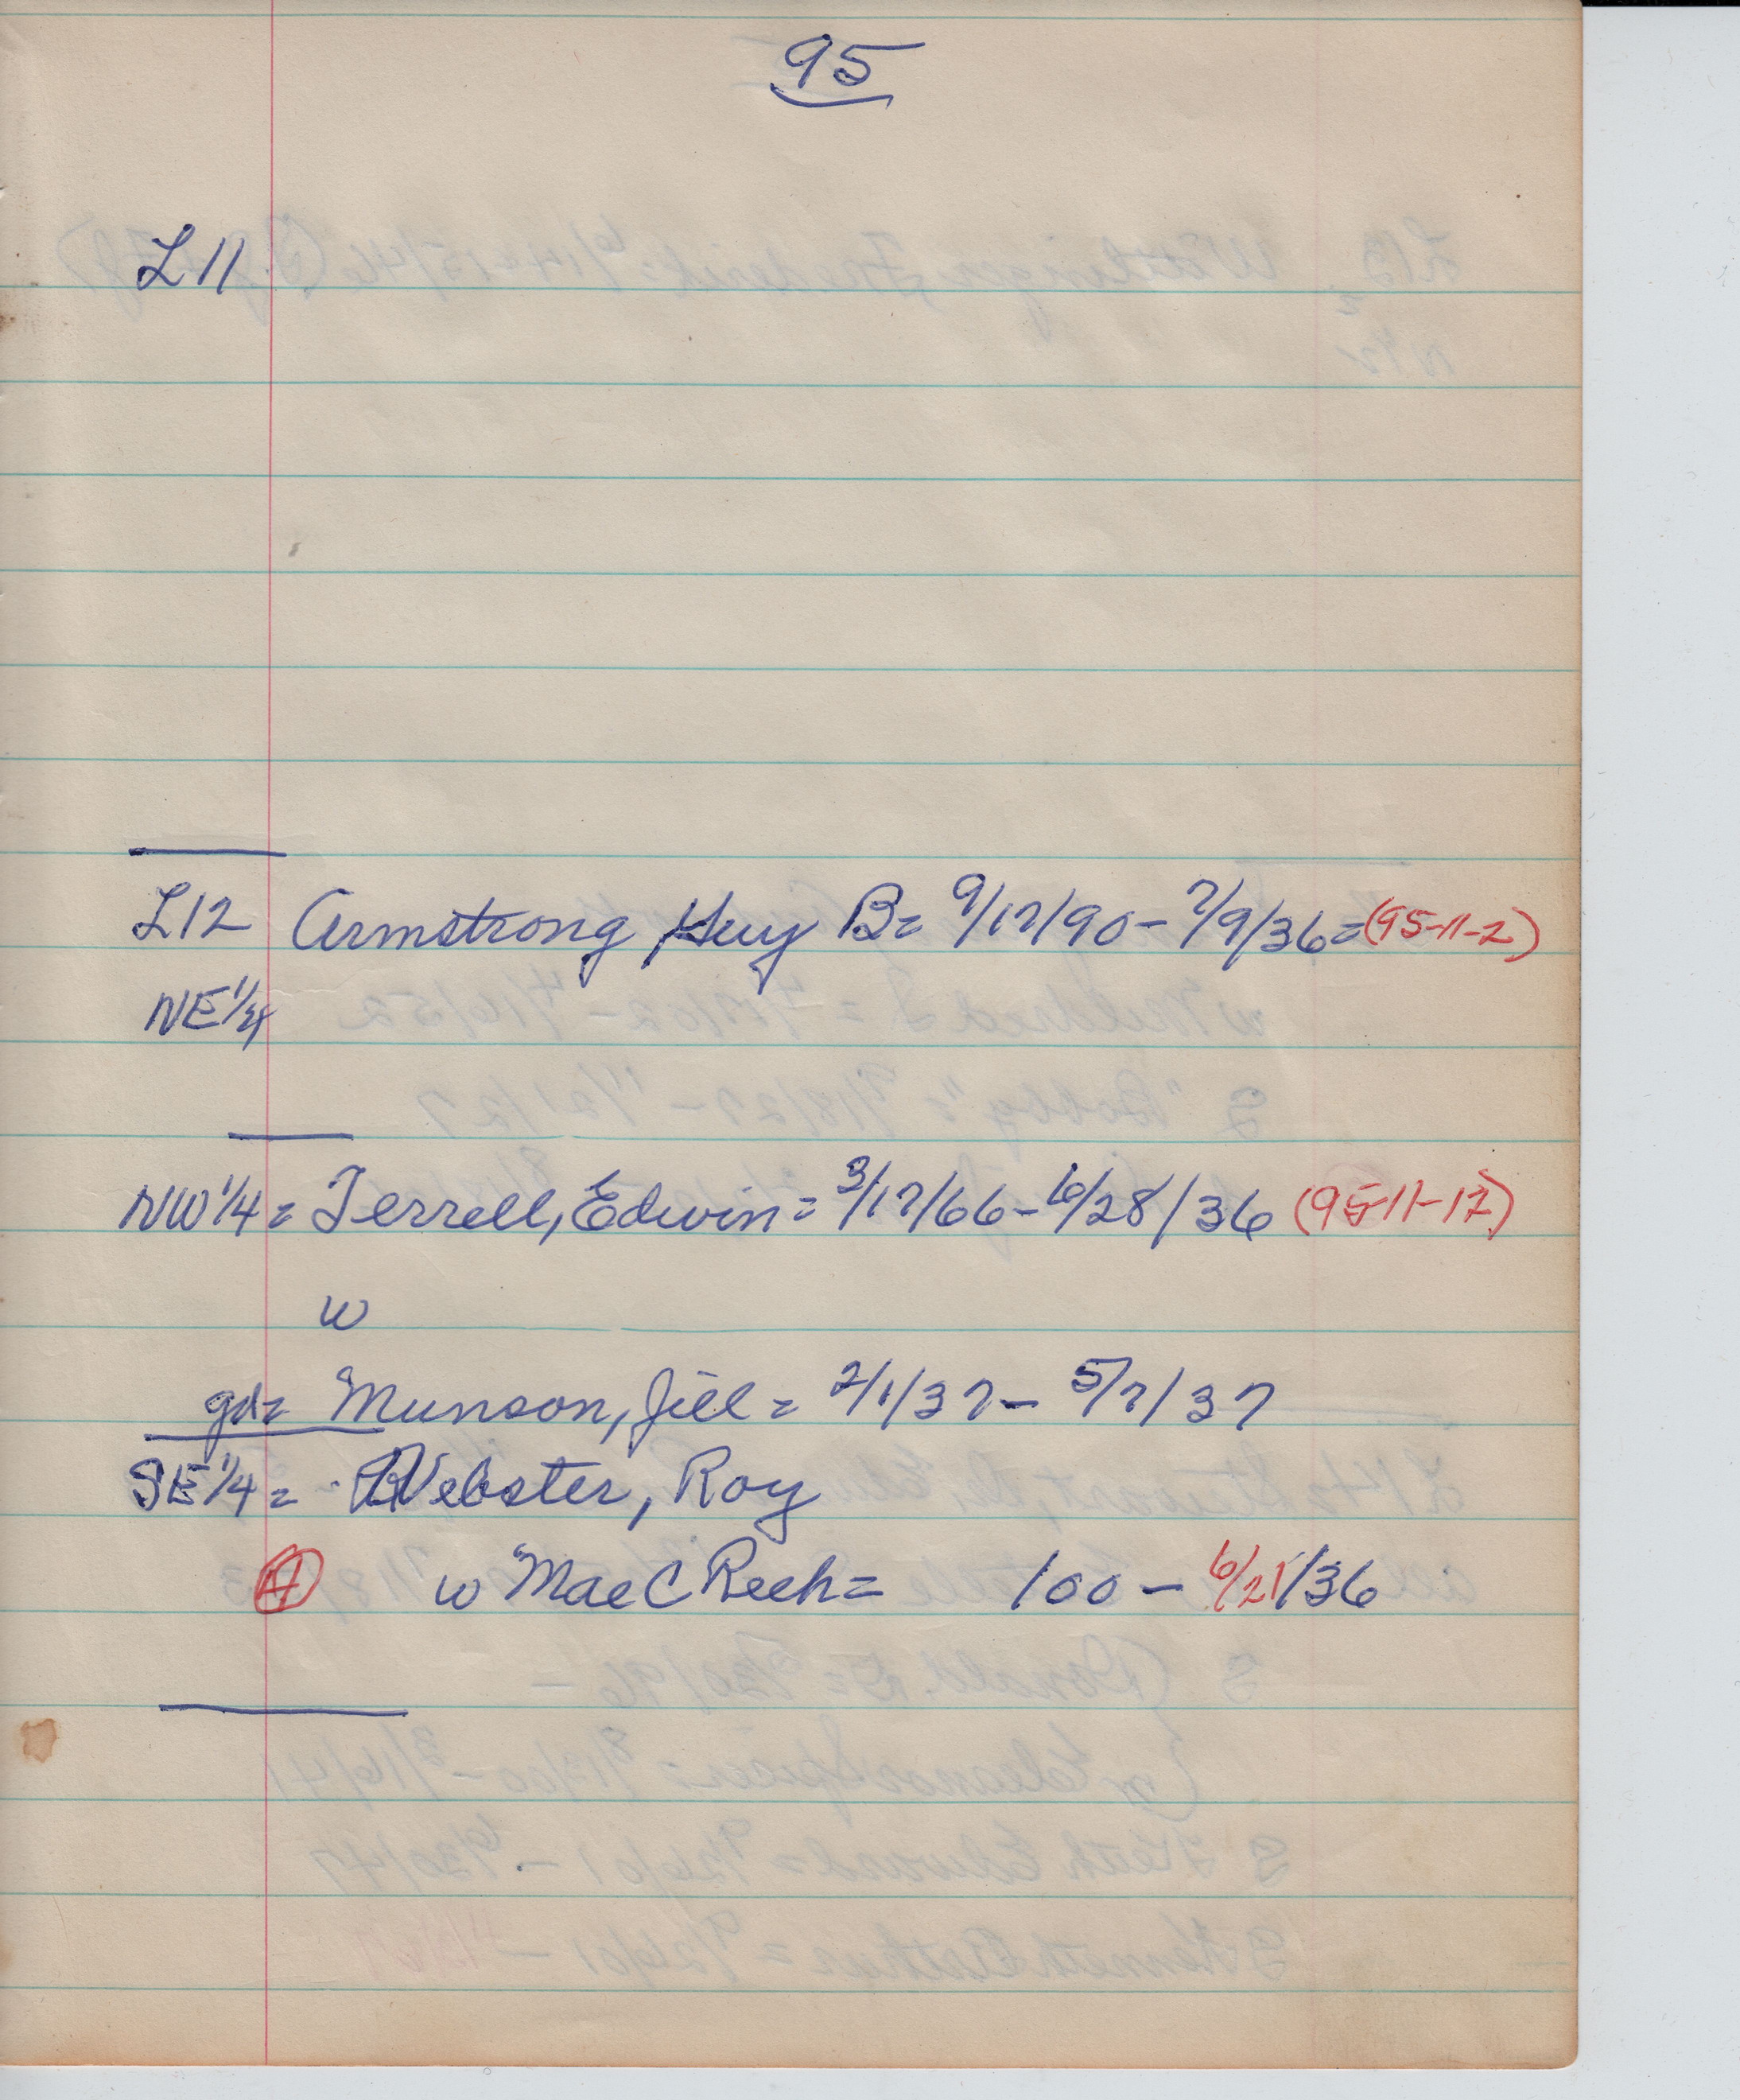 95
L11
L12 Armstrong Guy B= 9/17/90 - 7/9/36 = (95-11-2)
NE 1/4
NW 1/4 = Terrell, Edwin = 3/17/66 - 6/28/36 (95-11-17)
w
gd= Munson, Jill = 2/1/37 - 5/7/37
SE 1/4 = Webster, Roy
H w Mae C = /00 - 6/21/36